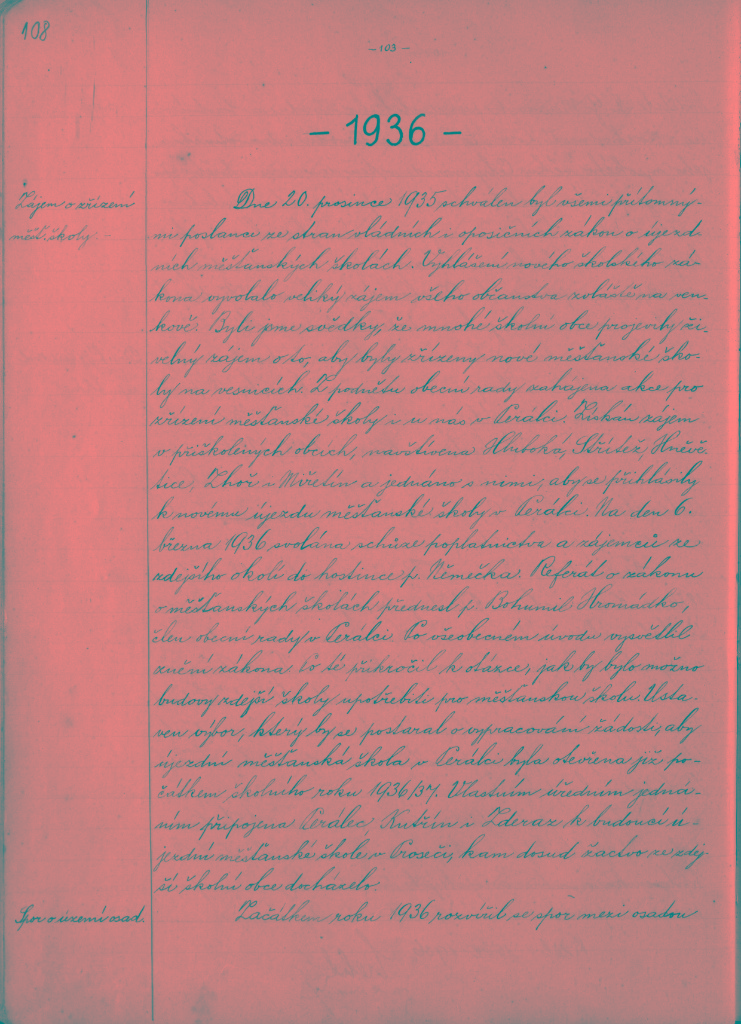 108
- 103 -
- 1936 -
Zájem o zřízení
měšť. školy. -
Dne 20. prosince 1935 schválen byl všemi přítomný-
mi poslanci ze stran vládních i oposičních zákon o újezd-
ních měšťanských školách. Vyhlášení nového školského zá-
kona vyvolalo veliký zájem všeho občanstva zvláště na ven-
kově. Byli jsme svědky, že mnohé školní obce projevily ži-
velný zájem o to, aby byly zřízeny nové měšťanské ško-
ly na vesnicích. Z podnětu obecní rady zahájena akce pro
zřízení měšťanské školy i u nás v Perálci. Získán zájem
v přiškolených obcích, navštívena Hluboká, Střítež, Hněvě-
tice, Zhoř i Miřetín a jednáno s nimi, aby se přihlásily
k novému újezdu měšťanské školy v Perálci. Na den 6.
března 1936 svolána schůze poplatnictva a zájemců ze
zdejšího okolí do hostince p. Němečka. Referát o zákonu
o měšťanských školách přednesl p. Bohumil Hromádko,
člen obecní rady v Perálci. Po všeobecném úvodu vysvětlil
znění zákona. Po té přikročil k otázce, jak by bylo možno
budovy zdejší školy upotřebiti pro měšťanskou školu. Usta-
ven výbor, který by se postaral o vypracování žádosti, aby
újezdní měšťanská škola v Perálci byla otevřena již po-
čátkem školního roku 1936/37. Vlastním úředním jedná-
ním připojena Perálec, Kutřín i Zderaz k budoucí ú-
jezdní měšťanské škole v Proseči, kam dosud žactvo ze zdej-
ší školní obce docházelo.
Spor o území osad.
Začátkem roku 1936 rozvířil se spor mezi osadou